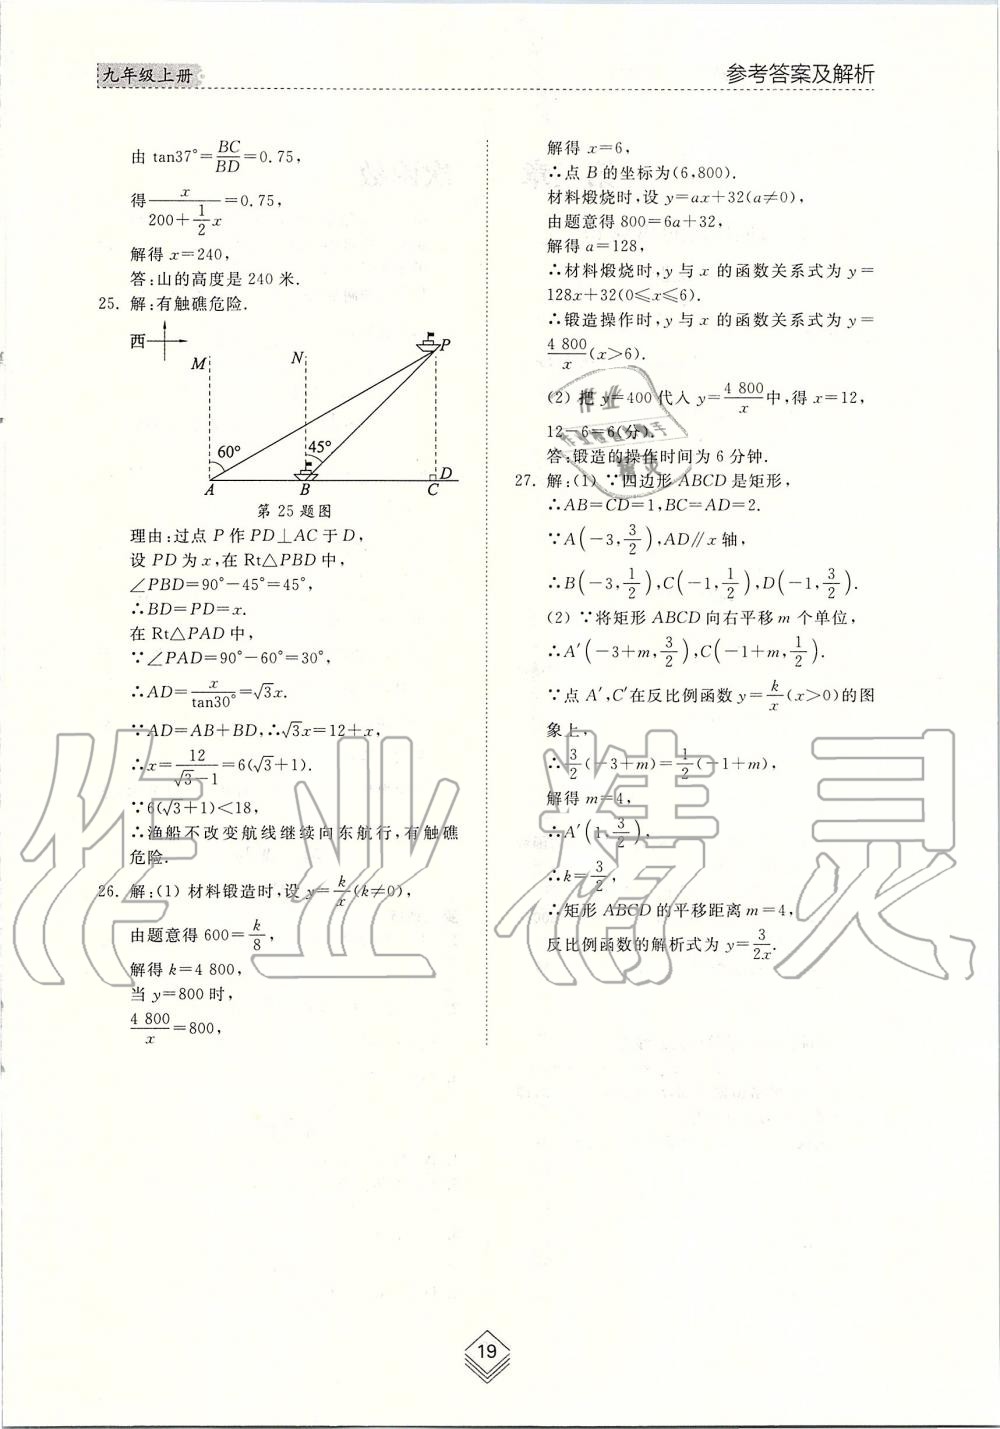 九年级上册
参考答案及解析
由 tan37°=BC/BD=0.75,
得 x/(200+1/2x)=0.75,
解得 x=240,
答:山的高度是 240 米.
25. 解:有触礁危险.
西
M N P
60° 45°
A B C D
第 25 题图
理由:过点 P 作 PD⊥AC 于 D,
设 PD 为 x,在 Rt△PBD 中,
∠PBD=90°-45°=45°,
∴BD=PD=x.
在 Rt△PAD 中,
∵∠PAD=90°-60°=30°,
∴AD=x/tan30°=√3x.
∵AD=AB+BD,∴√3x=12+x,
∴x=12/(√3-1)=6(√3+1).
∵6(√3+1)<18,
∴渔船不改变航线继续向东航行,有触礁
危险.
26. 解:(1) 材料锻造时,设 y=k/x(k≠0),
由题意得 600=k/8,
解得 k=4 800,
当 y=800 时,
4 800/x=800,
解得 x=6,
∴点 B 的坐标为(6,800).
材料煅烧时,设 y=ax+32(a≠0),
由题意得 800=6a+32,
解得 a=128,
∴材料煅烧时,y 与 x 的函数关系式为 y=
128x+32(0⩽x⩽6).
∴锻造操作时,y 与 x 的函数关系式为 y=
4 800/x(x>6).
(2) 把 y=400 代入 y=4 800/x中,得 x=12,
12-6=6(分).
答:锻造的操作时间为 6 分钟.
27. 解:(1) ∵四边形 ABCD 是矩形,
∴AB=CD=1,BC=AD=2.
∵A(-3,3/2),AD∥x 轴,
∴B(-3,1/2),C(-1,1/2),D(-1,3/2).
(2) ∵将矩形 ABCD 向右平移 m 个单位,
∴A′(-3+m,3/2),C(-1+m,1/2).
∵点 A′,C′在反比例函数 y=k/x(x>0)的图
象上,
∴3/2(-3+m)=1/2(-1+m),
解得 m=4,
∴A′(1,3/2),
∴k=3/2,
∴矩形 ABCD 的平移距离 m=4,
反比例函数的解析式为 y=3/2x.
作业精灵
19